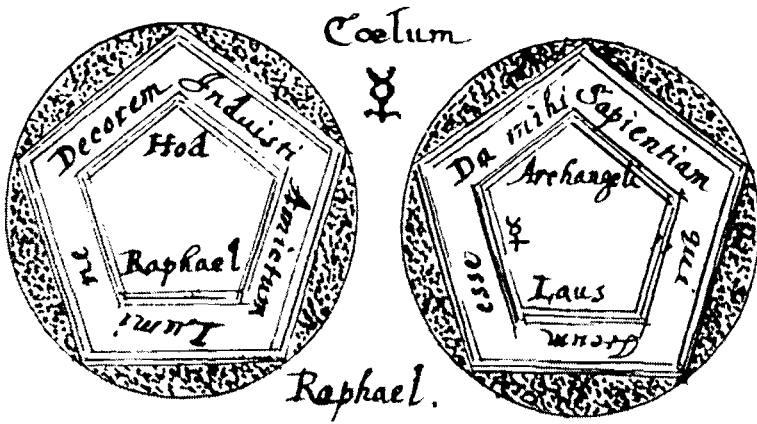 Coelum
☿
Decorem Induisti Amictum Lumine
Hod
Raphael
Da mihi Sapientiam qui
esse
Archangeli
☿
Laus
Raphael.